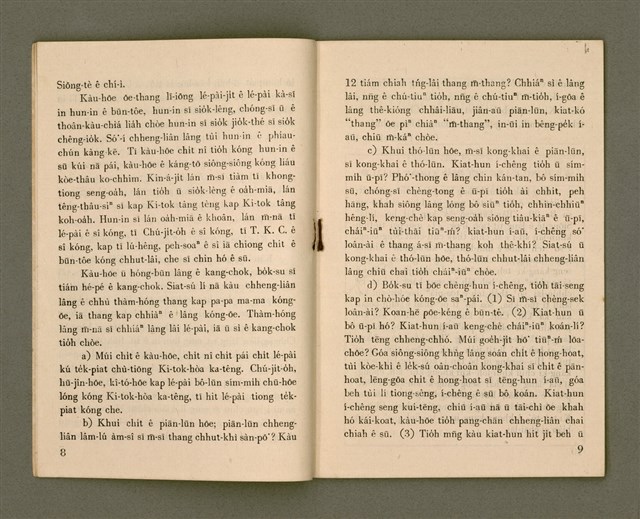 Siōng-tè ê chí-ì.
Kàu-hōe ōe-thang lī-iōng lé-pài-ji̍t ê lé-pài kà-sī
in hun-in ê būn-tôe, hun-in sī sio̍k-lêng, chóng-sī ū ê
thoân-kàu-chiá lia̍h chòe hun-in sī sio̍k jio̍k-thé sī sio̍k
chêng-io̍k. Só͘-í chheng-liân lâng tùi hun-in ê phiau-
chún káng-kē. Tī kàu-hōe chit nî tio̍h kóng hun-in ê
sū kúi nā pái, kàu-hōe ê káng-tô siông-siông kóng liáu
kòe-thâu ko-chhim. Kin-á-ji̍t lán m̄-sī tiàm tī khong-
tiong seng-oa̍h, lán tio̍h ū sio̍k-lêng ê oa̍h-miā, lán
têng-thâu-siⁿ sī kap Ki-tok tâng têng kap Ki-tok tâng
koh-oa̍h. Hun-in sī lán oa̍h-miā ê khoân, lán m̄-nā tī
lé-pài ê sî kóng, tī Chú-ji̍t-o̍h ê sî kóng, tī T. K. C. ê
sî kóng, kap tī lú-hêng, peh-soaⁿ ê sî iā chiong chit ê
būn-tôe kóng chhut-lâi, che sī chin hó ê sū.
Kàu-hōe ū hông-būn lâng ê kang-chok, bo̍k-su sī
tiám hé-pé ê kang-chok. Siat-sú lí nā kàu chheng-liân
lâng ê chhù thàm-hóng thang kap pa-pa ma-ma kóng-
ōe, iā thang kap chhiàⁿ ê lâng kóng-ōe. Thàm-hóng
lâng m̄-nā sī chhiáⁿ lâng lâi lé-pài, iā ū sî ê kang-chok
tio̍h chòe.
a) Múi chit ê kàu-hōe, chit nî chit pái chit lé-pài
kú te̍k-piat chū-tiōng Ki-tok-hòa ka-têng. Chú-ji̍t-o̍h,
hū-jîn-hōe, kî-tó-hōe kap lé-pài bô-lūn sím-mih chū-hōe
lóng kóng Ki-tok-hòa ka-têng, tī hit lé-pài tiong te̍k-
piat kóng che.
b) Khui chit ê piān-lūn hōe; piān-lūn chheng-
liân lâm-lú àm-sî sī m̄-sī thang chhut-khì sàn-pō͘? Kàu
8
12 tiám chiah tńg-lâi thang m̄-thang? Chhiáⁿ sì ê lâng
lâi, nn̄g ê chú-tiuⁿ tio̍h, nn̄g ê chú-tiuⁿ m̄-tio̍h, í-gōa ê
lâng thê-kióng chhâi-liāu, jiân-āu piān-lūn, kiat-kó
“thang” ōe pìⁿ chiàⁿ “m̄-thang”, in-ūi in bêng-pe̍k í-
āu, chiū m̄-káⁿ chòe.
c) Khui thó-lūn hōe, m̄-sī kong-khai ê piān-lūn,
sī kong-khai ê thó-lūn. Kiat-hun í-chêng tio̍h ū sím-
mih ū-pī? Phó͘-thong ê lâng chin kán-tan, bô sím-mih
sū, chóng-sī chèng-tong ê ū-pī tio̍h ài chhit, peh
hāng, khah siông lâng lóng bô siūⁿ tio̍h, chhin-chhiūⁿ
hêng-lí, keng-chè kap seng-oa̍h siōng tiâu-kiāⁿ ê ū-pī,
cháiⁿ-iūⁿ túi-thāi tiaⁿ-m̄? kiat-hun í-āu, í-chêng só͘
loân-ài ê thang á-sī m̄-thang koh thê-khí? Siat-sú ū
kong-khai ê thó-lūn hōe, thó-lūn chhut-lâi chheng-liân
lâng chiū chai tio̍h cháiⁿ-iūⁿ chòe.
d) Bo̍k-su tī bōe chèng-hun í-chêng, tio̍h tāi-seng
kap in chò-hóe kóng-ōe saⁿ-pái. (1) Sī m̄-sī chèng-sek
loân-ài? Koan-hē pōe-kéng ê būn-tê. (2) Kiat-hun ū
bô ū-pī hó? Kiat-hun í-āu keng-chè cháiⁿ-iūⁿ koán-lí?
Tio̍h tēng chheng-chhó. Múi goe̍h-ji̍t hō͘ tiuⁿ-m̄ lōa-
chōe? Góa siông-siông khǹg lâng soán chit ê hong-hoat,
tùi kòe-khì ê le̍k-sú oân-choân kong-khai sī chit ê pān-
hoat, lēng-gōa chit ê hong-hoat sī têng-hun í-āu, góa
beh tùi lí tiong-sêng, í-chêng ê sū bô koán. Kiat-hun
í-chêng seng kui-têng, chiū í-āu nā ū tāi-chì ōe khah
hó kái-koat, kàu-hōe tio̍h pang-chān chheng-liân chai
chiah ê sū. (3) Tio̍h mn̄g kàu kiat-hun hit ji̍t beh ū
9